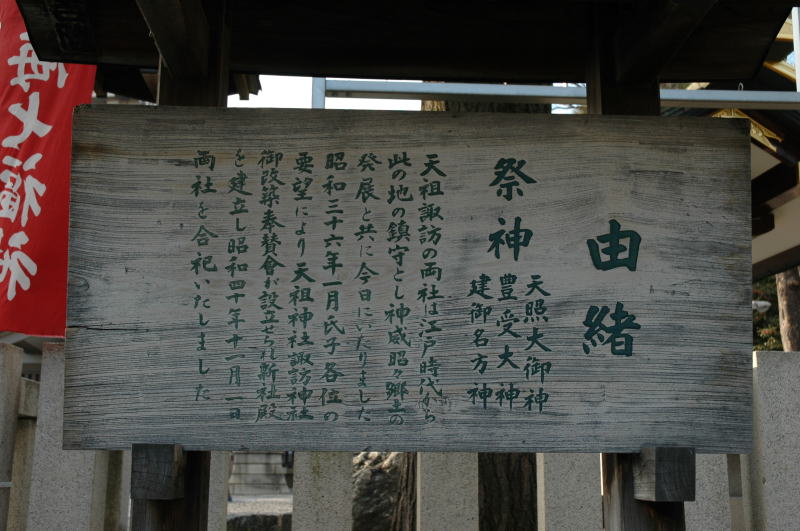 由緒
祭神
天照大御神
豊受大神
建御名方神
天祖諏訪の両社は江戸時代から
此の地の鎮守とし神威昭々郷土の
発展と共に今日にいたりました
昭和三十六年一月氏子各位の
要望により天祖神社諏訪神社
御改築奉賛會が設立せられ新社殿
を建立し昭和四十年十一月一日
両社を合祀いたしました
海七福神